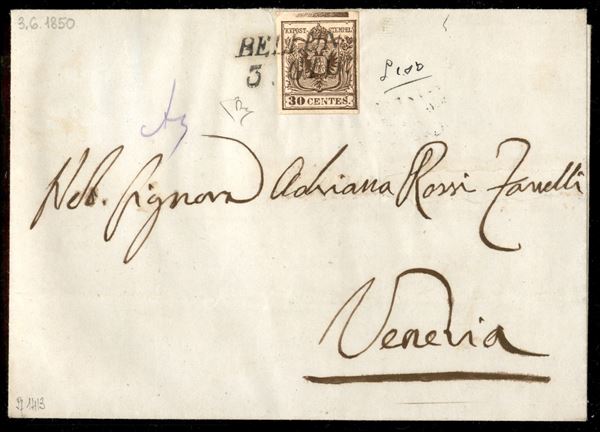 3.6.1850
KK POST-STEMPEL
30 CENTES.
Nob. Signora Adriana Rossi Zanelli
Venezia